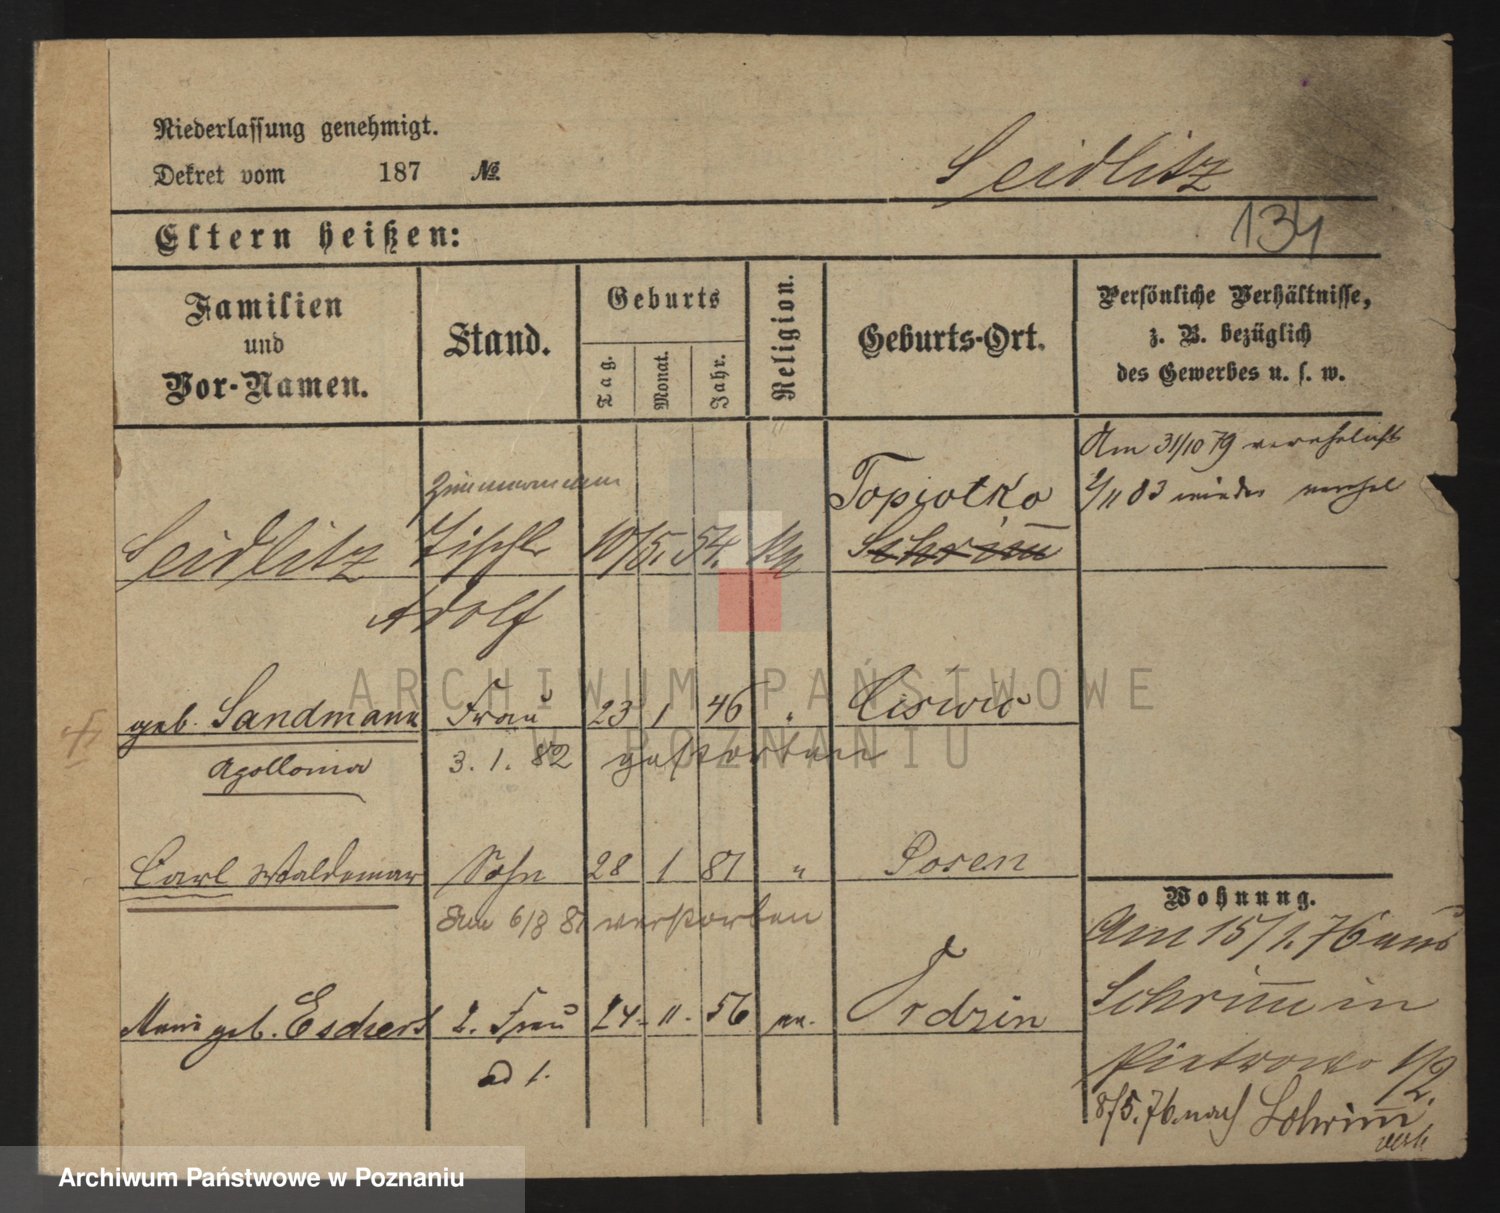 Niederlassung genehmigt.
Dekret vom 187 №
Seidlitz
134
Eltern heißen:
Familien und Vor-Namen.
Stand.
Geburts
Tag. Monat. Jahr.
Religion.
Geburts-Ort.
Persönliche Verhältnisse, z. B. bezüglich des Gewerbes u. s. w.
Am 31/10 79 verehelicht
83 wieder
Zimmermann
Topiolka
Seidlitz Tischler 10/5. 54. Schrimm
Adolf
geb. Sandmann Frau 23 1 46 "
Apollonia 3. 1. 82 gestorben
Carl Waldemar Sohn 28 1 81 " Posen
Am 6/8 81 verstorben
geb. Eschert 2. Frau 24. 11. 56 ev.
ad 1.
Wohnung.
Am 15/1. 76 aus
Schrimm in
Pietrowo 1/2.
8/5. 76. nach Schrimm
ARCHIWUM PAŃSTWOWE
W POZNANIU
Archiwum Państwowe w Poznaniu